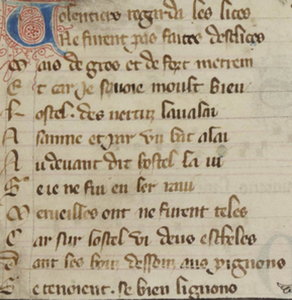 Volentiers regarda les lices
Ne furent pas faites de slices
Mais de gros et de fort merrem
Et car je savoie moult bien
Lostel des vertuz la valai
A sanne et par un bat alai
Au devant dit hostel la vi
Se ie ne fui en ler ravi
Merveilles ont ne furent teles
Car sur lostel vi deus escheles
Dont les bouz dessem aus pignons
Se tenoient. se bien lignons